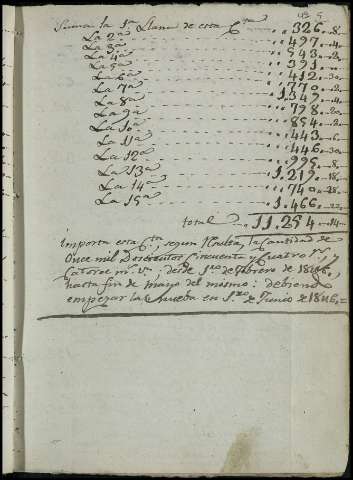 Suma la 1ª Llana de esta Cta ... 326..8.
La 2ª ... 497..4.
La 3ª ... 543..2.
La 4ª ... 391...
La 5ª ... 412..30.
La 6ª ... 770..2.
La 7ª ... 1.349..4.
La 8ª ... 798..20.
La 9ª ... 854..2.
La 10ª ... 443..6.
La 11ª ... 446..30.
La 12ª ... 995..8.
La 13ª ... 1.219..18.
La 14ª ... 740..28.
La 15ª ... 1.466..22.
total ... 11.254..14.
Importa esta Cta, segun la Cantidad de
Once mil Doscientos Cincuenta y Cuatro rs, y
Catorce ms. vn, desde 1ro de Febrero de 1846,
hasta fin de mayo del mismo: debiendo
empezar la nueba en 1ro de Junio de 1846.=